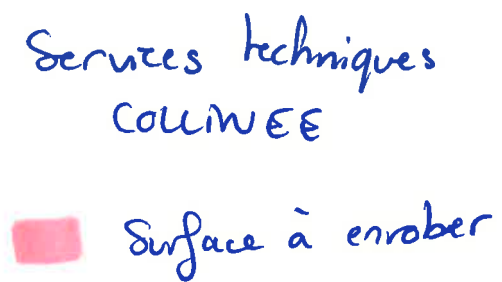 Services techniques
COLLINEE
Surface à enrober